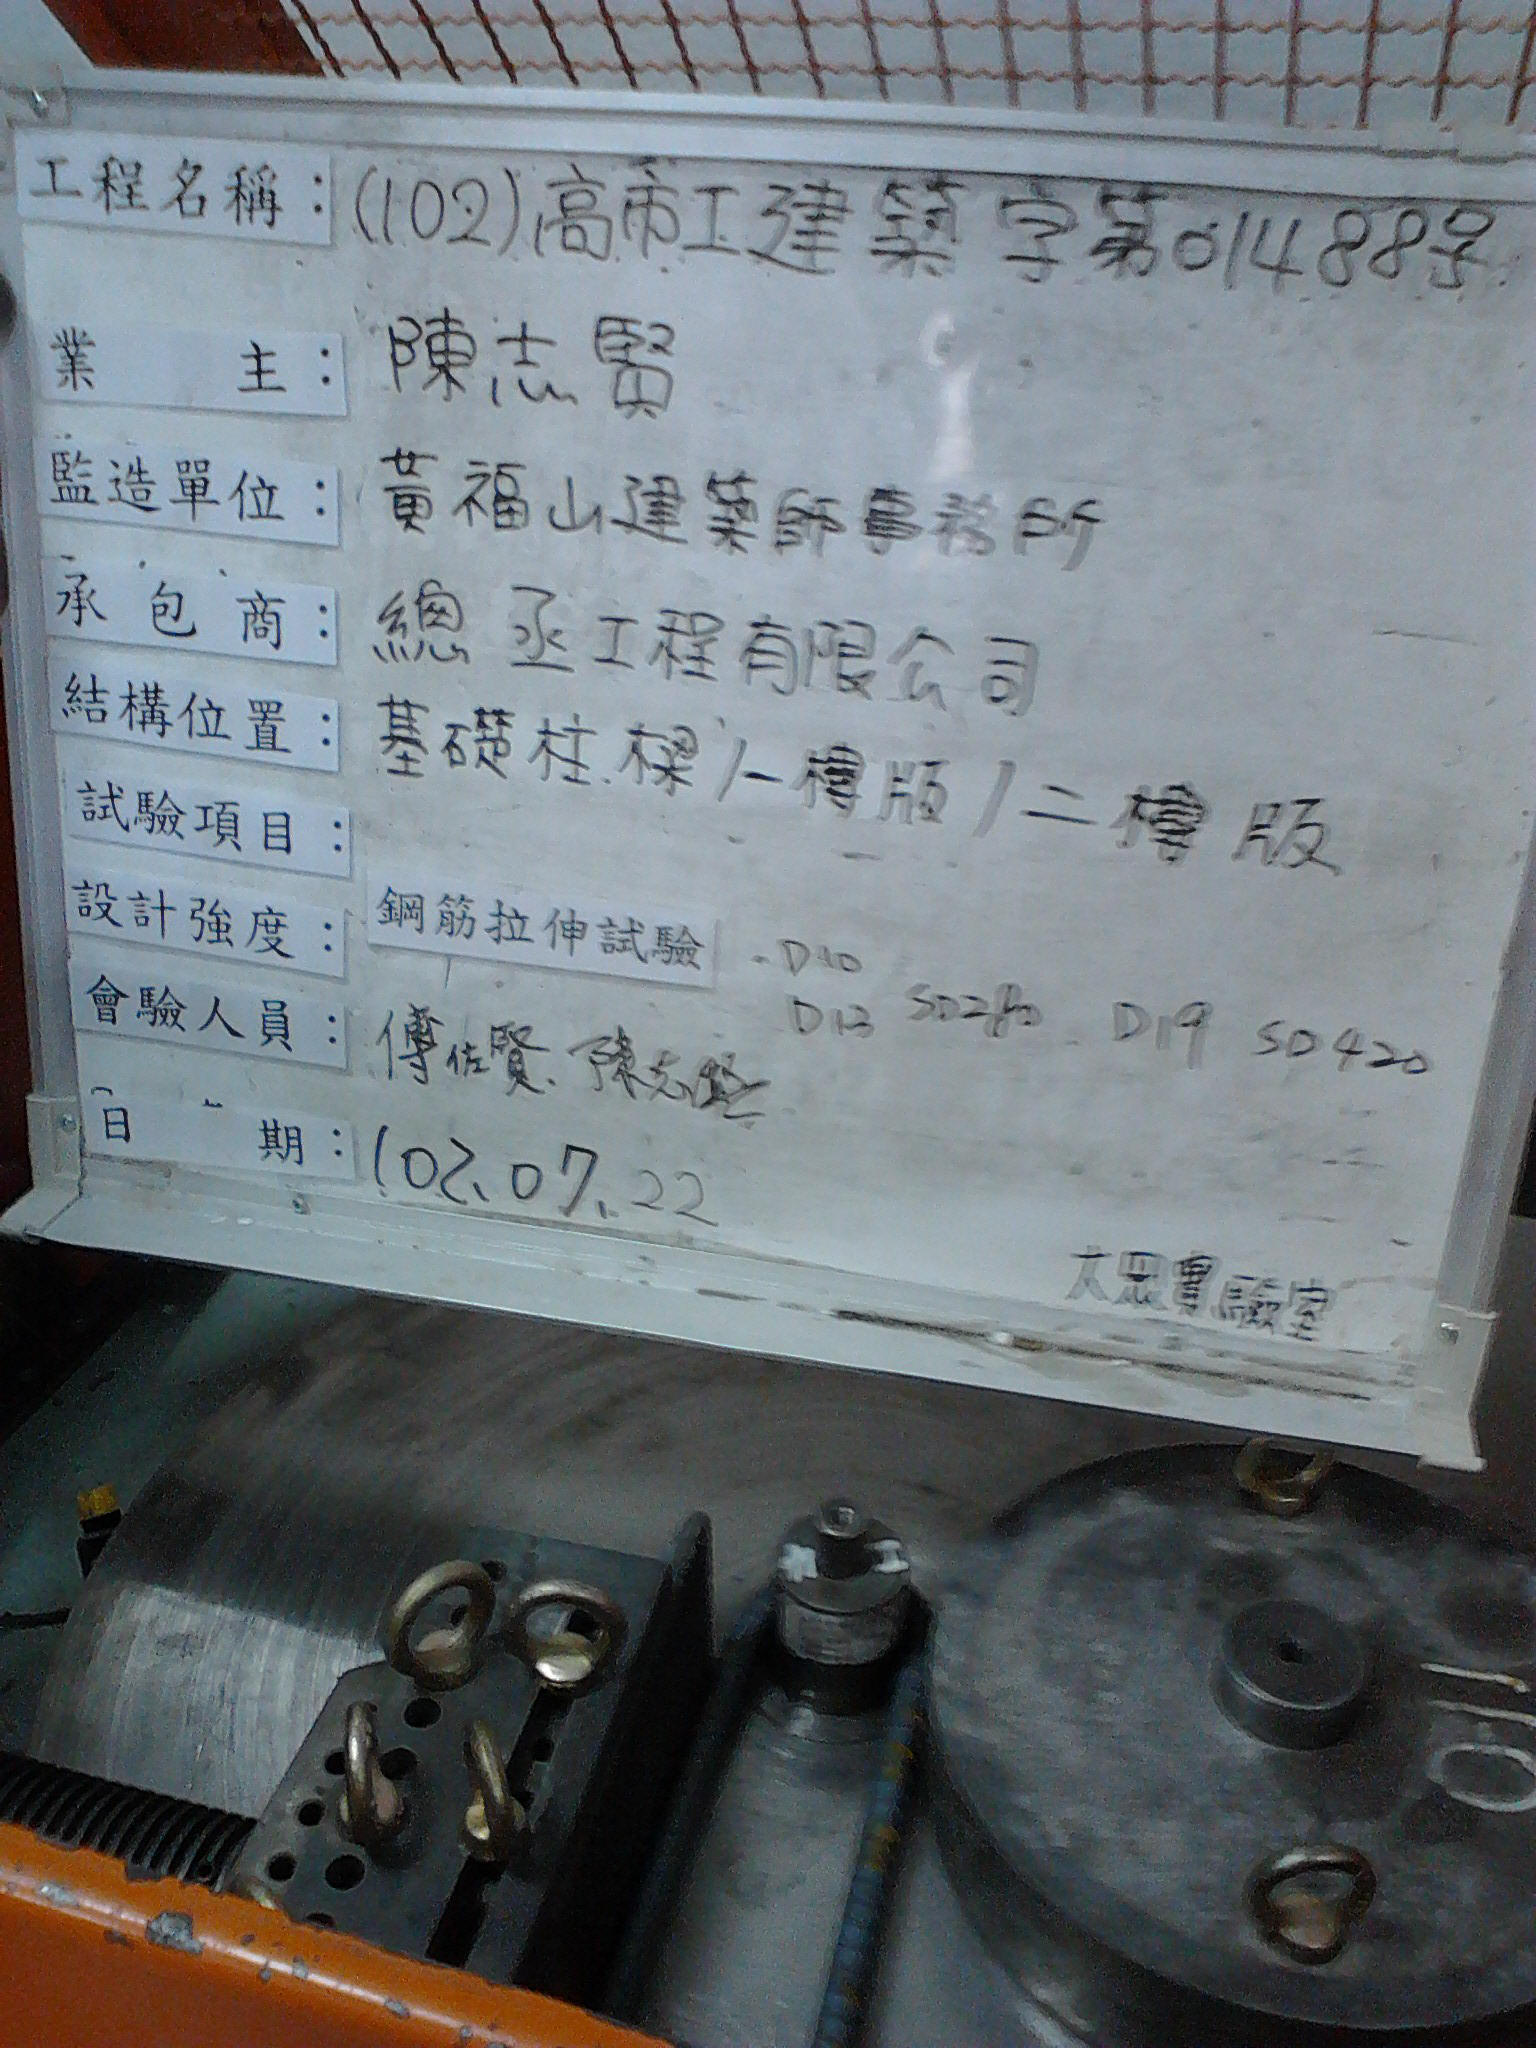 工程名稱：(102)高市工建築字第01488号
業主：陳志賢
監造單位：黃福山建築師事務所
承包商：總丞工程有限公司
結構位置：基礎柱.樑/一樓版/二樓版
試驗項目：
鋼筋拉伸試驗 D10
設計強度：
D13 SD280 D19 SD420
會驗人員：傅佐賢、陳志賢
日期：102.07.22
大眾實驗室